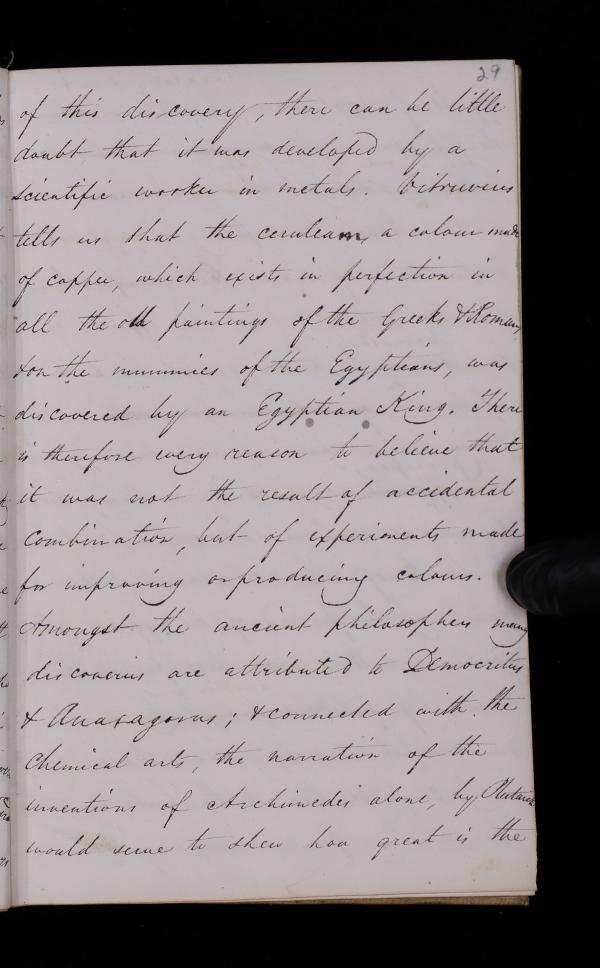 29
of this discovery, there can be little
doubt that it was developed by a
scientific worker in metals. Vitruvius
tells us that the cerulean, a colour made
of copper, which exists in perfection in
all the old paintings of the Greeks & Romans
& on the mummies of the Egyptians, was
discovered by an Egyptian King. There
is therefore every reason to believe that
it was not the result of accidental
combination, but of experiments made
for improving or producing colours.
Amongst the ancient philosophers many
discoveries are attributed to Democritus
& Anaxagoras; & connected with the
Chemical arts, the narration of the
inventions of Archimedes alone, by Plutarch
would serve to shew how great is the